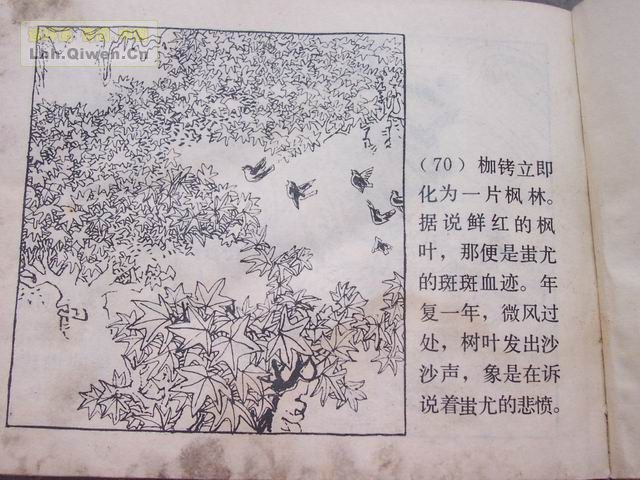 Lhh.Qiwen.Cn
(70) 枷铐立即
化为一片枫林。
据说鲜红的枫
叶，那便是蚩尤
的斑斑血迹。年
复一年，微风过
处，树叶发出沙
沙声，象是在诉
说着蚩尤的悲愤。